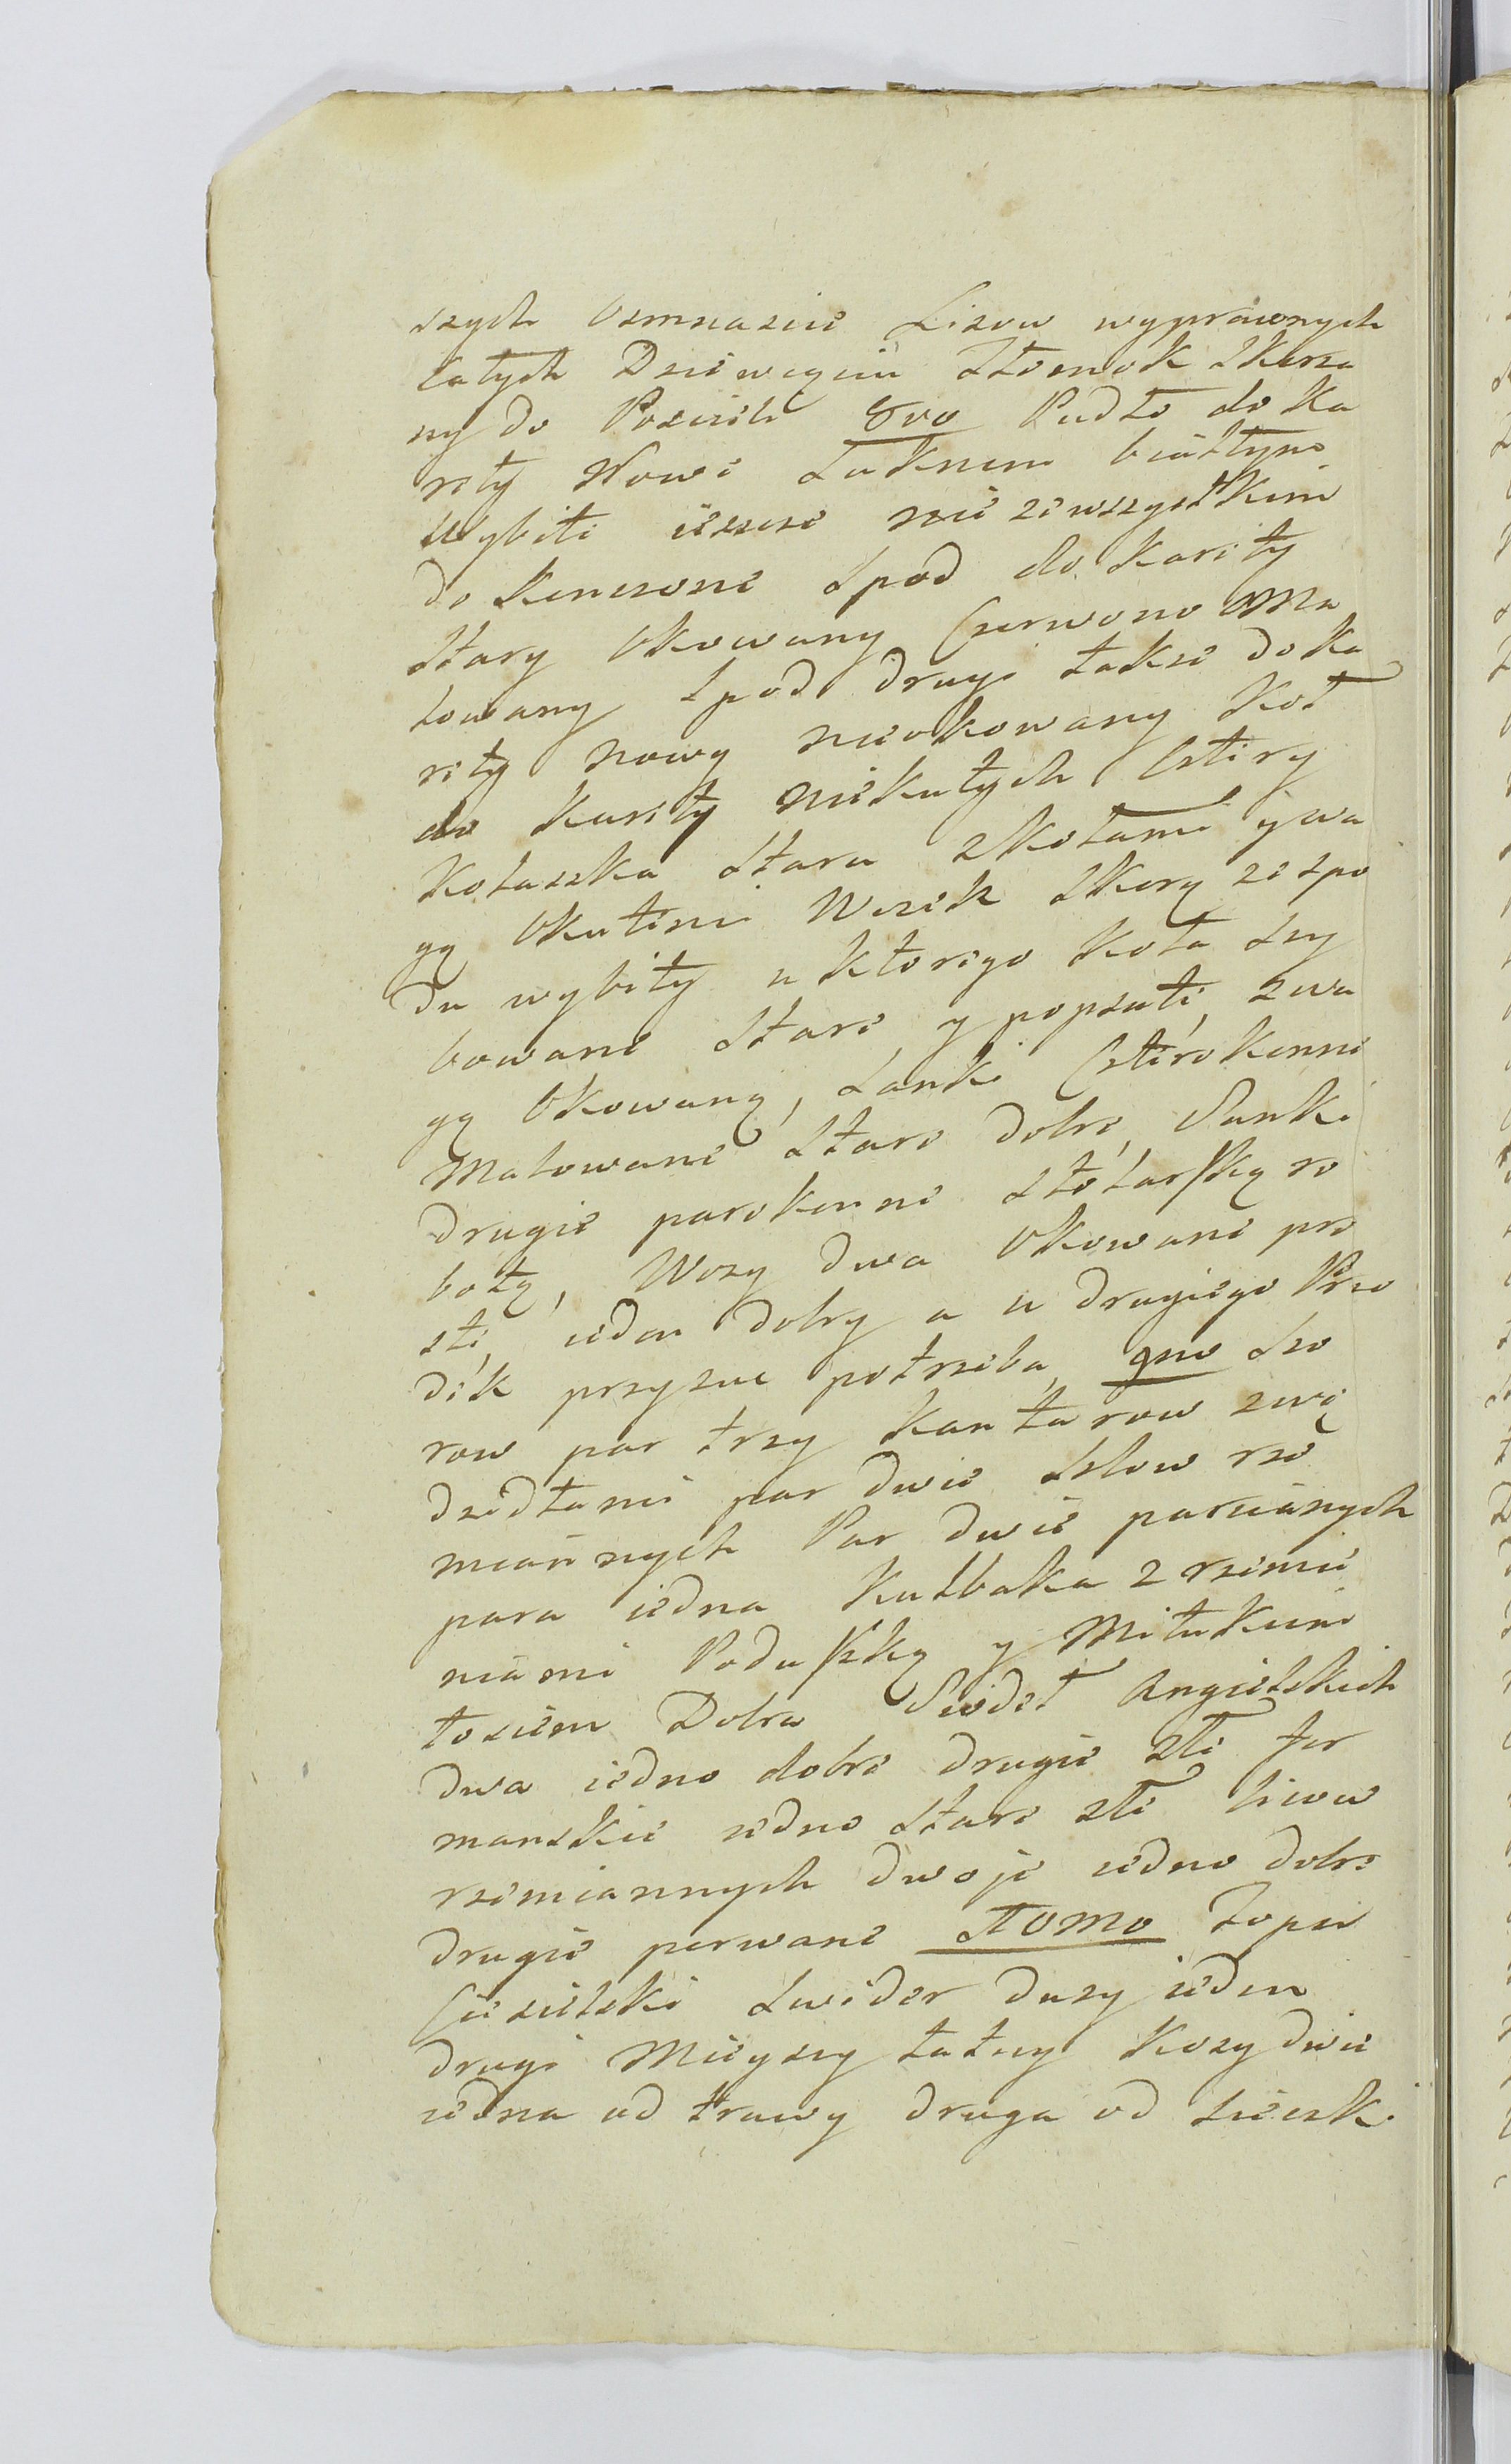 szych Osmnascie Lisow wyprawnych
całych Dziewięciu Tłomok Skorza
ny do Poscieli 8vo Pudło do Ka
rety Nowe Suknem białym
wybite ieszcze nie zewszystkim
do Konczone Spod do Karety
Stary Okowany Czerwono Ma
lowany Spod drugi takze do Ka
rety nowy nieokowany Koł
do Karety niekutych Cztery
Kolaszka Stara z Kołami y wa
gą Okutemi Wozek Skorą ze spo
du wybity u ktorego Koła Szy
bowane Stare y popsute, z wa
gą Okowaną, Sanki Cztérokonne
Malowane Stare dobre, Sanki
drugie parokonne Stolarską ro
botą, Wozy dwa Okowane pro
ste, ieden dobry a u drugiego Przo
dek przyzuc potrzeba, 9no Szo
row par trzy Kantarow z wę
dzidłami par dwie Szlow rze
miennych Par dwie parcianych
para iedna Kulbaka z rzemie
niami Poduszką y Mitukiem
łosiem Dobra Siodeł Angielskich
dwa iedno dobre drugie złe fur
manskie iedno Stare złe Licow
rzemiannych dwoje iedno dobre
drugie porwane 10mo Topor
Ciesielski Swider duzy ieden
drugi Mieyszy łatny Kosy dwie
iedna od trawy druga od Sieczk